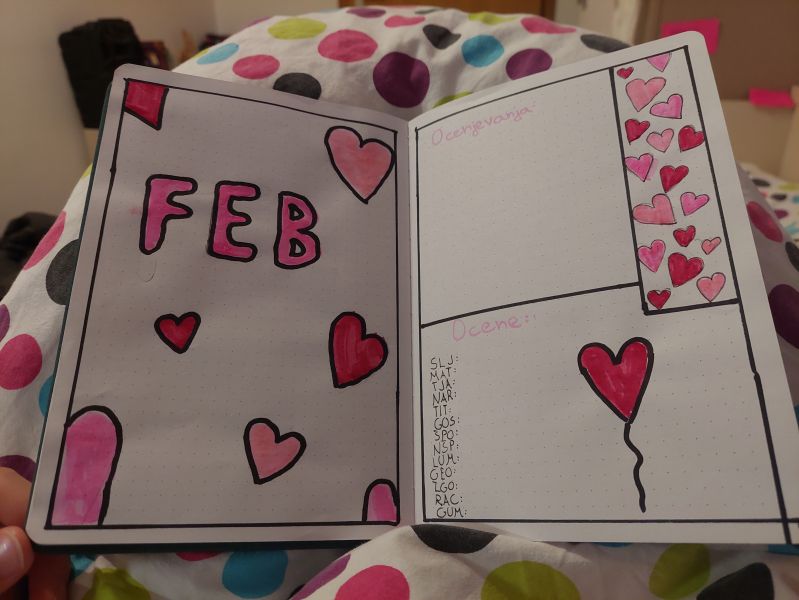 FEB
Ocenjevanja:
Ocene:
SLJ:
MAT:
TJA:
NAR:
TIT:
GOS:
SPO:
NSP:
LUM:
GEO:
ZGO:
RAC:
GUM: